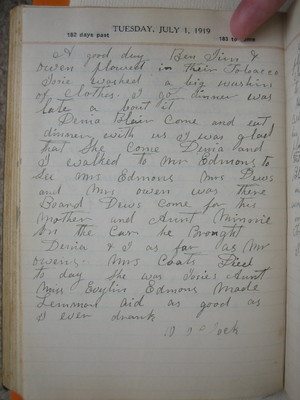 TUESDAY, JULY 1, 1919
182 days past 183 to
A good day Ben Jim &
owen plowed in their Tobacco
Josie washed a big washing
of clothes. I got dinner was
late a bout it
Denia Blair Come and eat
dinner with us I was glad
that She Come Denia and
I walked to Mr Edmons to
See Mrs Edmons Mrs Dews
and Mrs owen was there
Board Dews Come for his
Mother and Aunt Minnie
On the Car he Brought
Denia & I as far as Mr
owens. Mrs Coats Died
to day She was Josies Aunt
Mrs Evylin Edmons Made
Lemmon aid as good as
I ever drank